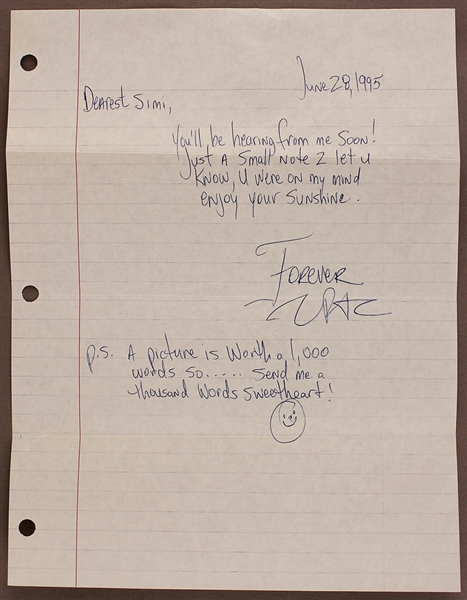 June 28, 1995
Dearest Simi,
You'll be hearing from me soon!
Just A Small Note 2 let u
Know, U were on my mind
enjoy your Sunshine.
Forever
2PAC
p.s. A picture is Worth a 1,000
words so..... Send me a
thousand Words Sweetheart!